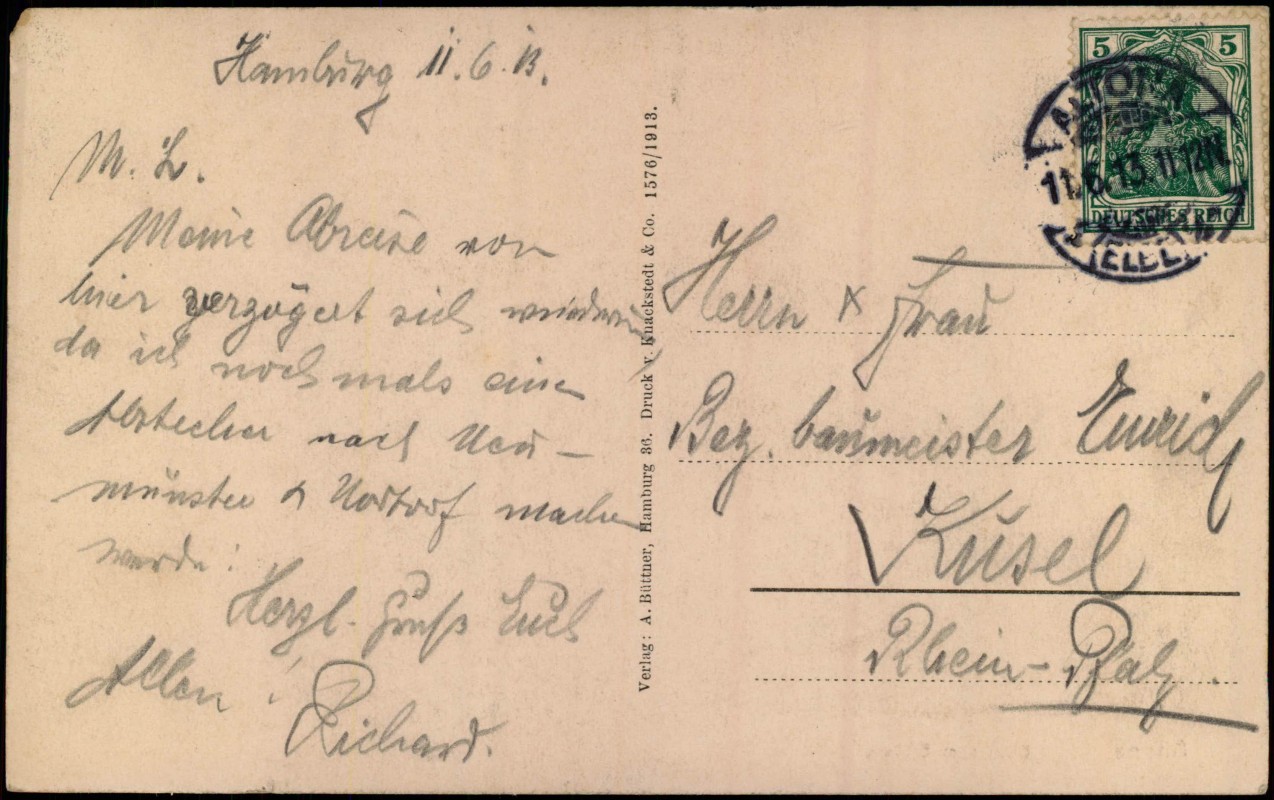 Hamburg 11.6.13.
M. L.
Meine Abreise von
hier verzögert sich wiederum
da ich nochmals einen
Abstecher nach Neu-
münster & Nortorf machen
werde!
Herzl. Gruß Euch
Allen!
Richard.
Verlag: A. Büttner, Hamburg 36. Druck v. Knackstedt & Co. 1576/1913.
5 5
DEUTSCHES REICH
ALTONA
11.6.13.11-12N.
(ELBE)
Herrn & Frau
Bez. baumeister Emrich
Kusel
Rhein-Pfalz.